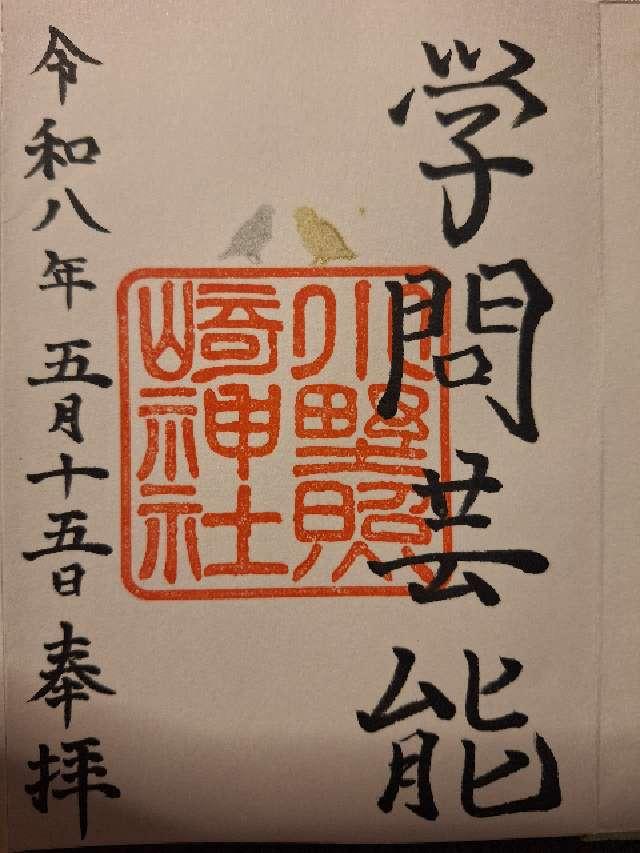 学問芸能
小野照
崎神社
令和八年五月十五日奉拝